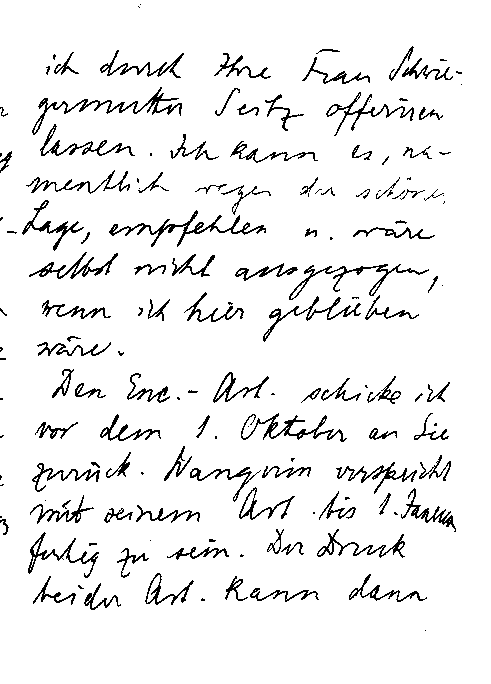 ich durch Ihre Frau Schwie-
germutter Seitz offeriren
lassen. Ich kann es, na-
mentlich wegen der schönen
Lage, empfehlen u. wäre
selbst nicht ausgezogen,
wenn ich hier geblieben
wäre.
Den Enc.-Art. schicke ich
vor dem 1. Oktober an Sie
zurück. Wangerin verspricht
mit seinem Art. bis 1. Januar
fertig zu sein. Der Druck
beider Art. kann dann